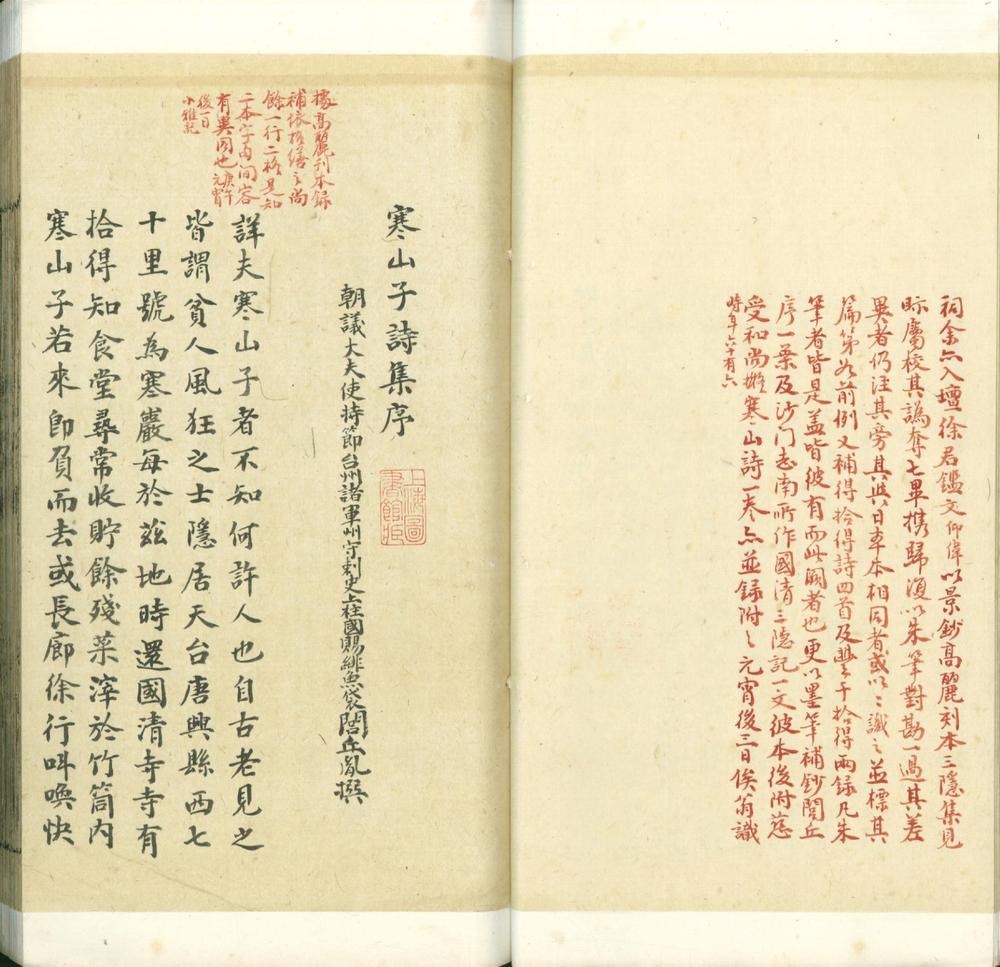 祠祭亦入壇徐君鑑文仰偉以景鈔高麗刻本三隱集見
眎屬校其譌奪七畢携歸復以朱筆對勘一過其差
異者仍注其旁其與日本本相同者或以〻識之並標其
篇第如前例又補得拾得詩四首及豐干拾得兩錄凡朱
筆者皆是蓋皆彼有而此闕者也更以墨筆補鈔閭丘
序一葉及沙门志南所作國清三隱記一文彼本後附慈
受和尚擬寒山詩一卷亦並錄附之元宵後三日俟翁識
時年六十有六
據高麗刊本錄
補依格繕之尚
餘一行二格是知
二本字句間容
有異同也庚午元宵
後一日
小雅記
寒山子詩集序
上海圖書館藏
朝議大夫使持節台州諸軍州守刺史上柱國賜緋魚袋閭丘胤撰
詳夫寒山子者不知何許人也自古老見之
皆謂貧人風狂之士隱居天台唐興縣西七
十里號為寒巖每於茲地時還國清寺寺有
拾得知食堂尋常收貯餘殘菜滓於竹筒內
寒山子若來即負而去或長廊徐行叫喚快